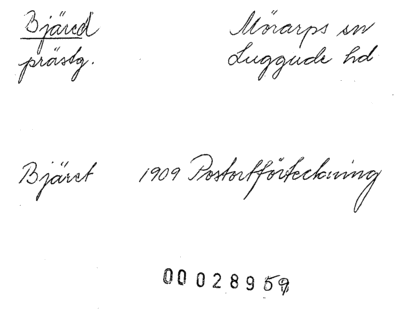 Bjäred Mörarps sn
prästg. Luggude hd
Bjäret 1909 Postortförteckning
00028959